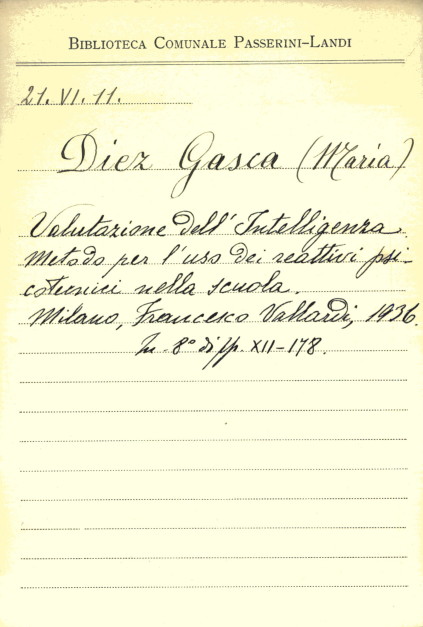 BIBLIOTECA COMUNALE PASSERINI-LANDI
21. VI. 11.
Diez Gasca (Maria)
Valutazione dell'Intelligenza.
Metodo per l'uso dei reattivi psi-
cotecnici nella scuola.
Milano, Francesco Vallardi, 1936.
In-8° di pp. XII-178.